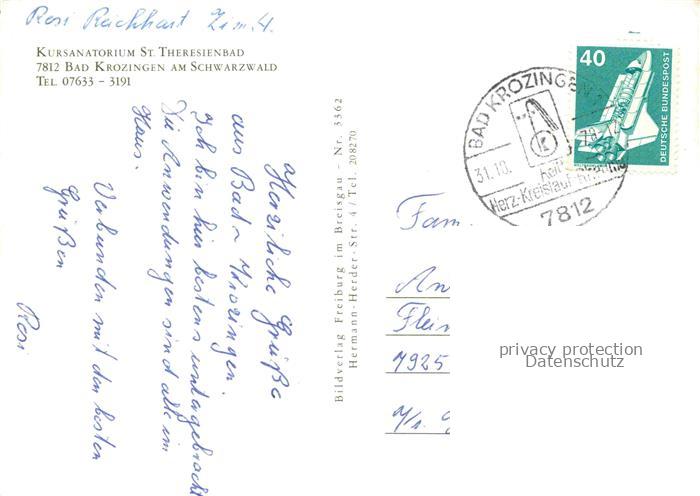 Rosi Reichhart Zim. 4.
KURSANATORIUM ST. THERESIENBAD
7812 BAD KROZINGEN AM SCHWARZWALD
TEL 07633 – 3191
Herzliche Grüße
aus Bad-Krozingen.
Ich bin hier bestens untergebracht
Die Anwendungen sind alle im
Haus.
Verbunden mit den besten
Grüßen
Rosi
Bildverlag Freiburg im Breisgau – Nr. 3362
Hermann-Herder-Str. 4 / Tel. 208270
BAD KROZINGEN
31.10.
78
Herz-Kreislauf-
7812
40
DEUTSCHE BUNDESPOST
Fam.
An
7925
privacy protection
Datenschutz